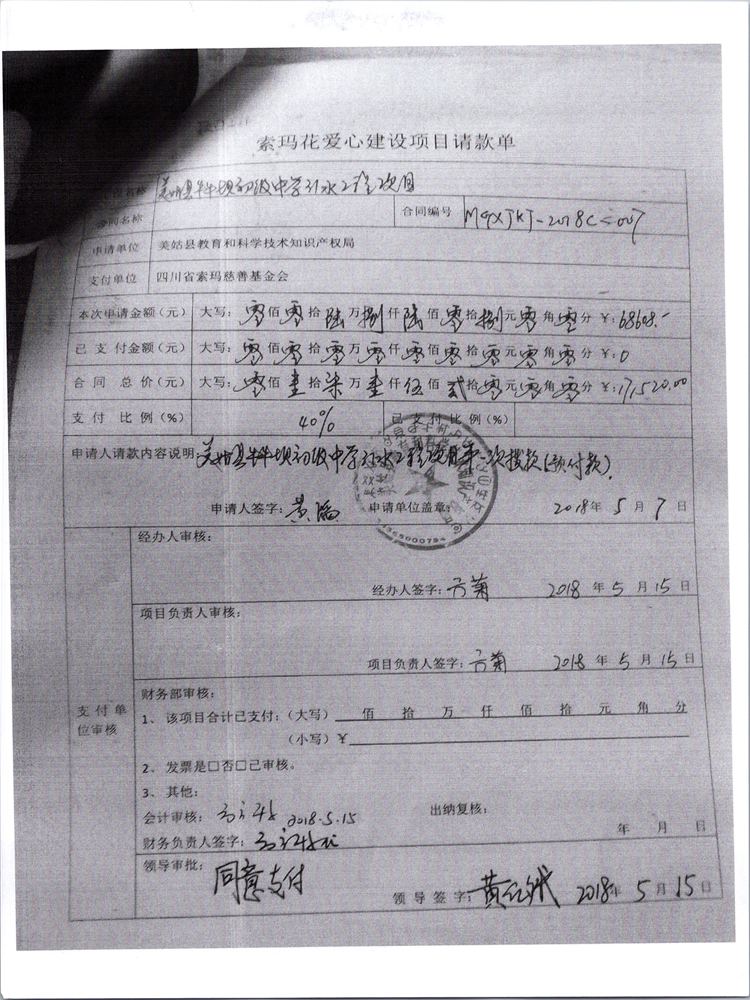 索玛花爱心建设项目请款单
名称 美姑县牛牛坝初级中学引水工程项目
合同名称 合同编号 MGXJKJ-2018C-007
申请单位 美姑县教育和科学技术知识产权局
支付单位 四川省索玛慈善基金会
本次申请金额(元) 大写:零佰零拾陆万捌仟陆佰零拾捌元零角零分 ¥:68608.-
已支付金额(元) 大写:零佰零拾零万零仟零佰零拾零元零角零分 ¥:0
合同总价(元) 大写:零佰壹拾柒万壹仟伍佰贰拾零元零角零分 ¥:171,520.00
支付比例(%) 40% 已支付比例(%)
申请人请款内容说明:美姑县牛牛坝初级中学引水工程项目第一次拨款(预付款).
申请人签字: 申请单位盖章: 2018年5月7日
支付单位审核
经办人审核:
经办人签字: 2018年5月15日
项目负责人审核:
项目负责人签字: 2018年5月15日
财务部审核:
1、该项目合计已支付:(大写) 佰 拾 万 仟 佰 拾 元 角 分
(小写)¥
2、发票是□否□已审核。
3、其他:
会计审核: 2018.5.15 出纳复核:
财务负责人签字: 年 月 日
领导审批: 同意支付
领导签字: 2018年5月15日